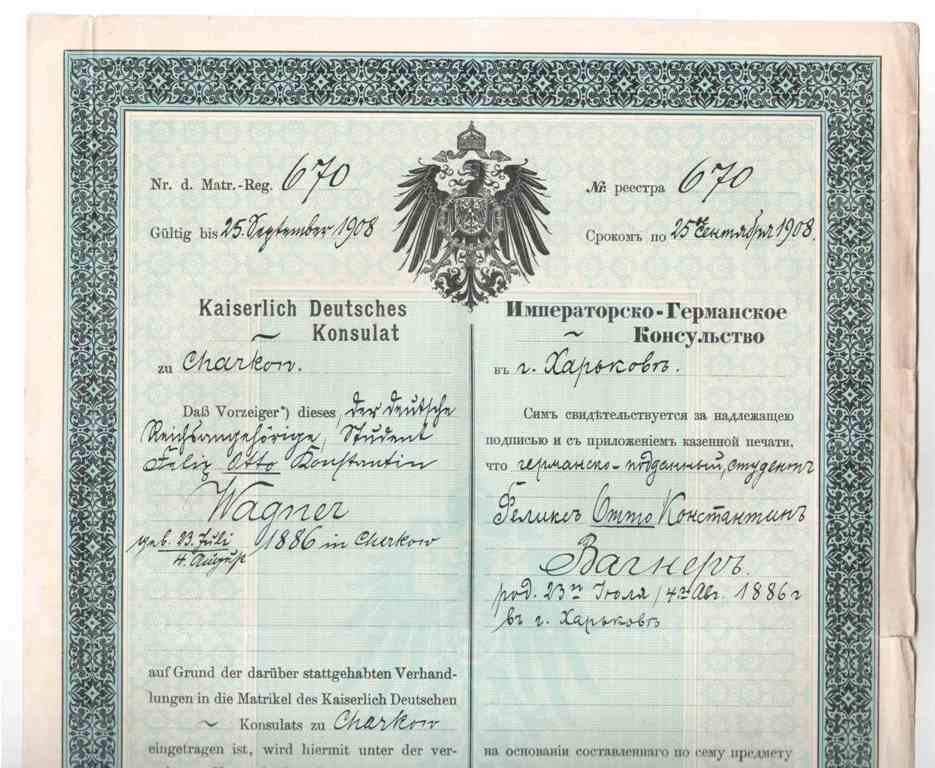 Nr. d. Matr.-Reg. 670
Gültig bis 25. September 1908
Kaiserlich Deutsches
~ Konsulat
zu Charkow.
Daß Vorzeiger*) dieses, der deutsche
Reichsangehörige, Student
Felix Otto Konstantin
Wagner
geb. 23. Juli
4. August 1886 in Charkow
auf Grund der darüber stattgehabten Verhand-
lungen in die Matrikel des Kaiserlich Deutschen
~ Konsulats zu Charkow
eingetragen ist, wird hiermit unter der ver-
№ реестра 670
Срокомъ по 25го Сентября 1908.
Императорско-Германское
~ Консульство
въ г. Харьковѣ.
Симъ свидѣтельствуется за надлежащею
подписью и съ приложеніемъ казенной печати,
что германско-подданный, студентъ
Феликсъ Отто Константинъ
Вагнеръ.
род. 23го Іюля / 4го Авг. 1886 г
въ г. Харьковѣ
на основаніи составленнаго по сему предмету